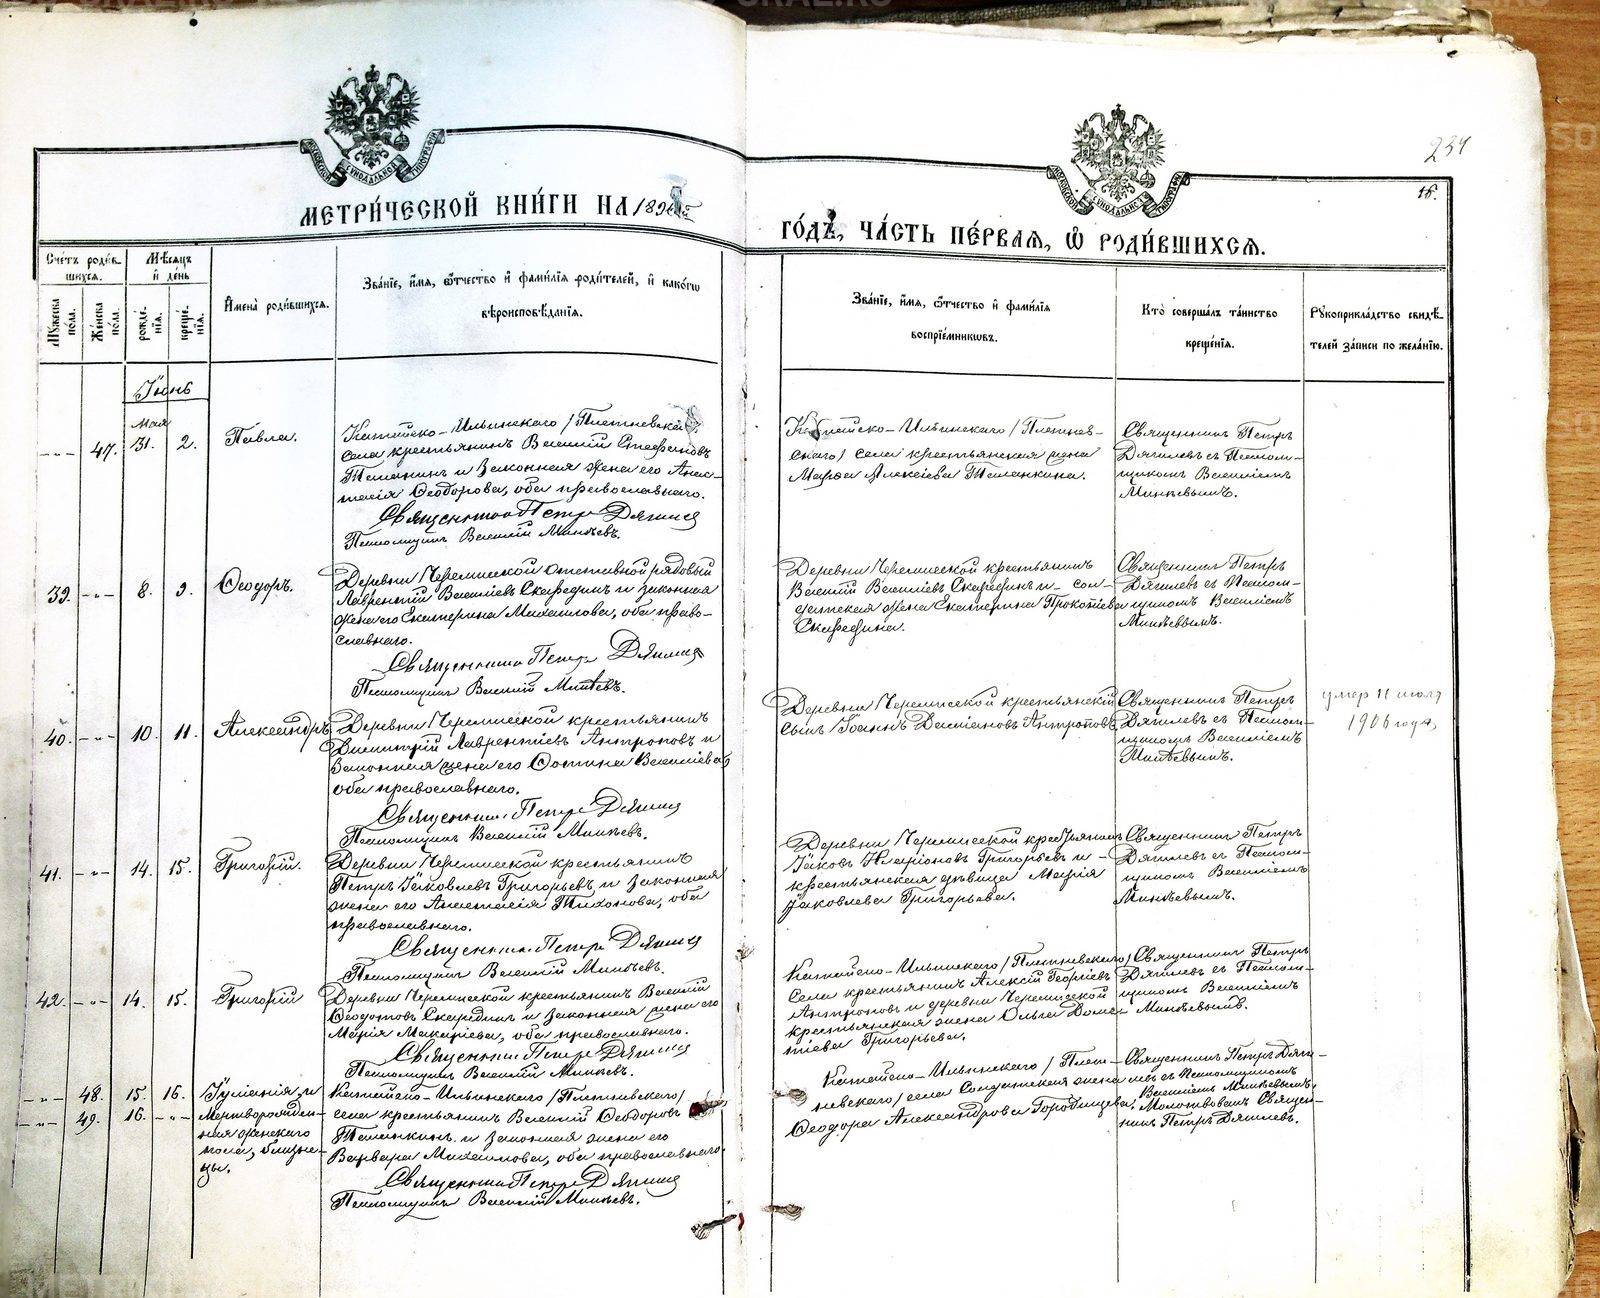 234
МЕТРИ́ЧЕСКОЙ КНИ́ГИ НА 189
ГО́ДЪ, ЧА́СТЬ ПЕ́РВАЯ, Ѽ РОДИ́ВШИХСЯ.
Сче́тъ роди́в-
шихся.
Мꙋжеска по́ла.
Же́нска по́ла.
Мѣ́сяцъ
и де́нь
рожде́-
нїя.
креще́-
нїя.
И҆мена̀ роди́вшихся.
Зва́нїе, и҆́мя, ѻ҆́тчество и҆ фами́лїя роди́телей, и҆ како́гѡ
вѣроисповѣ́данїя.
Зва́нїе, и҆́мя, ѻ҆́тчество и҆ фами́лїя
воспрїе́мникѡвъ.
Кто̀ соверша́лъ та́инство
креще́нїя.
Рꙋкоприкла́дство свидѣ́-
телей за́писи по жела́нїю.
Іюнь
47. мая 31. 2. Павла.
Катайско-Ильинскаго /Плетневскаго/
села крестьянинъ Василій Стефановъ
Теланкин и законная жена его Анас-
тасія Ѳеодорова, оба православнаго.
Священникъ Петръ Дягилев
Псаломщикъ Василій Минѣевъ.
Катайско-Ильинскаго /Плетнев-
скаго/ села крестьянская жена
Марѳа Алексіева Теланкина.
Священникъ Петръ
Дягилевъ съ Псалом-
щикомъ Василіемъ
Минѣевымъ.
39. 8. 9. Ѳеодоръ.
Деревни Черемисской отставной рядовый
Лаврентій Василіевъ Скарединъ и законная
жена его Екатерина Михаилова, оба право-
славнаго.
Священникъ Петръ Дягилев
Псаломщикъ Василій Минѣевъ.
Деревни Черемисской крестьянинъ
Василій Василіевъ Скарединъ и сол-
датская жена Екатерина Прокопіева
Скаредина.
Священникъ Петръ
Дягилевъ съ Псалом-
щикомъ Василіемъ
Минѣевымъ.
40. 10. 11. Александръ.
Деревни Черемисской крестьянинъ
Димитрій Лаврентіевъ Антроповъ и
законная жена его Фотина Василіева,
оба православнаго.
Священникъ Петръ Дягилев
Псаломщикъ Василій Минѣевъ.
Деревни Черемисской крестьянскій
сынъ Іоаннъ Даміановъ Антроповъ.
Священникъ Петръ
Дягилевъ съ Псалом-
щикомъ Василіемъ
Минѣевымъ.
умер 11 июля
1906 года,
41. 14. 15. Григорій.
Деревни Черемисской крестьянинъ
Петръ Іаковлевъ Григорьевъ и законная
жена его Анастасія Тихонова, оба
православнаго.
Священникъ Петръ Дягилев
Псаломщикъ Василій Минѣевъ.
Деревни Черемисской крестьянинъ
Іаковъ Иларіоновъ Григорьевъ и
крестьянская дѣвица Марія
Іаковлева Григорьева.
Священникъ Петръ
Дягилевъ съ Псалом-
щикомъ Василіемъ
Минѣевымъ.
42. 14. 15. Григорій
Деревни Черемисской крестьянинъ Василій
Ѳеодотовъ Скарединъ и законная жена его
Марія Макаріева, оба православнаго.
Священникъ Петръ Дягилев
Псаломщикъ Василій Минѣевъ.
Катайско-Ильинскаго /Плетневскаго/
села крестьянинъ Алексій Георгіевъ
Антроповъ и деревни Черемисской
крестьянская жена Ольга Доме-
тіева Григорьева.
Священникъ Петръ
Дягилевъ съ Псалом-
щикомъ Василіемъ
Минѣевымъ.
48. 15. 16. Іуліанія, и
49. 16. Мертворожден-
ная женскаго
пола, близне-
цы.
Катайско-Ильинскаго /Плетневскаго/
села крестьянинъ Василій Ѳеодоровъ
Теланкинъ и законная жена его
Варвара Михаилова, оба православнаго.
Священникъ Петръ Дягилев
Псаломщикъ Василій Минѣевъ.
Катайско-Ильинскаго /Плет-
невскаго/ села Солдатская жена
Ѳеодора Александрова Городищева.
Священникъ Петръ Дяги-
левъ съ Псаломщикомъ
Василіемъ Минѣевымъ.
Молитвовалъ Священ-
никъ Петръ Дягилевъ.